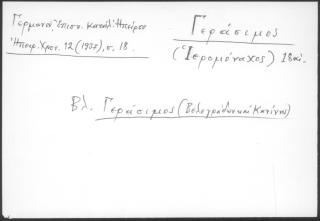 Γερμανού, Επισκ. Κατάλ. Ηπείρου
Ηπειρ. Χρον. 12 (1937), σ. 18.
Γεράσιμος
(Ἱερομόναχος) 18 αἰ.
Βλ. Γεράσιμος (Βελεγράδων και Κανίνης)